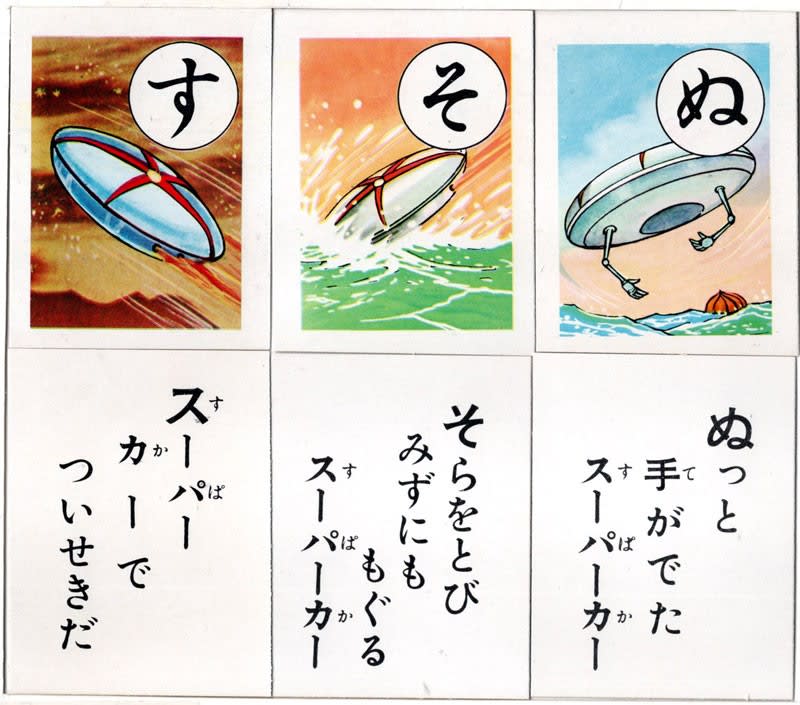 す
そ
ぬ
スーパー
カーで
ついせきだ
すぱ
か
そらをとび
みずにも
もぐる
スーパーカー
すぱか
ぬっと
手がでた
スーパーカー
て
すぱか